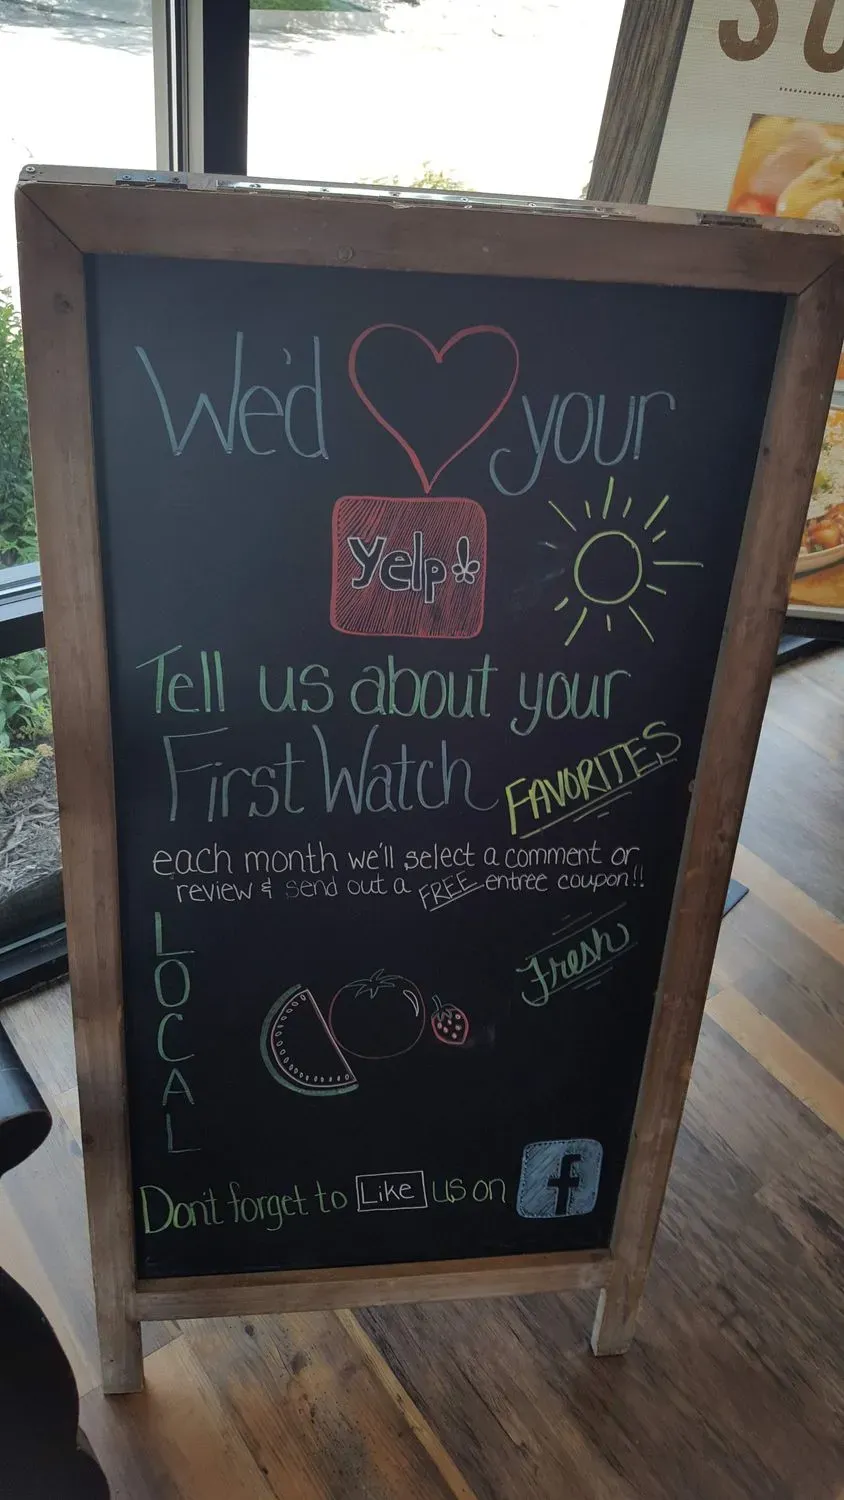 We'd your
yelp
Tell us about your
First Watch FAVORITES
each month we'll select a comment or
review & send out a FREE entree coupon!!
LOCAL
Fresh
Don't forget to Like us on f